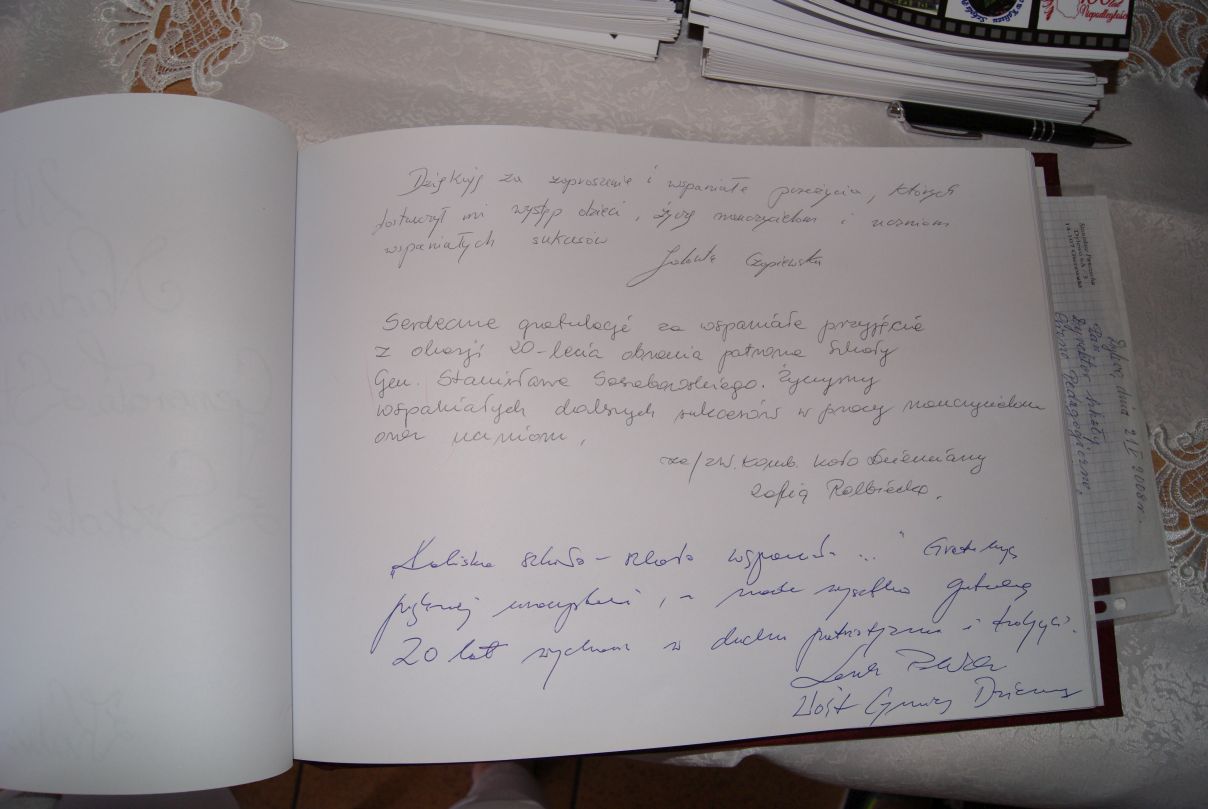 Dziękuję za zaproszenie i wspaniałe przeżycia, których
dostarczył mi występ dzieci, życzę nauczycielom i uczniom
wspaniałych sukcesów
Jolanta Czapiewska
Serdeczne gratulacje za wspaniałe przyjęcie
z okazji 20-lecia obrania patrona Szkoły
Gen. Stanisława Sosabowskiego. Życzymy
wspaniałych dalszych sukcesów w pracy nauczycielom
oraz uczniom,
za/zw. Komb. Koło Dziemiany
Zofia Rolbiecka.
„Kaliska szkoła – szkoła wspaniała ..." Gratuluję
pięknej uroczystości, a nade wszystko gratuluję
20 lat wychowania w duchu patriotyzmu i tradycji.
Leszek
Wójt Gminy Dziemiany
dnia 21 2008r.
Dyrektor szkoły
Grono Pedagogiczne
Niepodległości